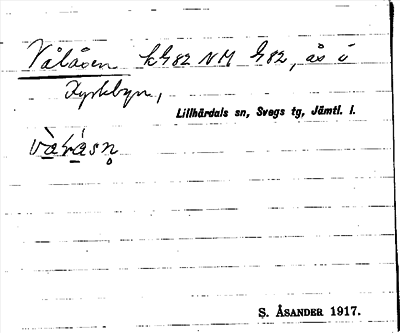 Vålåsen kG82 NM G82, ås i
Kyrkbyn,
Lillhärdals sn, Svegs tg, Jämtl. l.
S. ÅSANDER 1917.